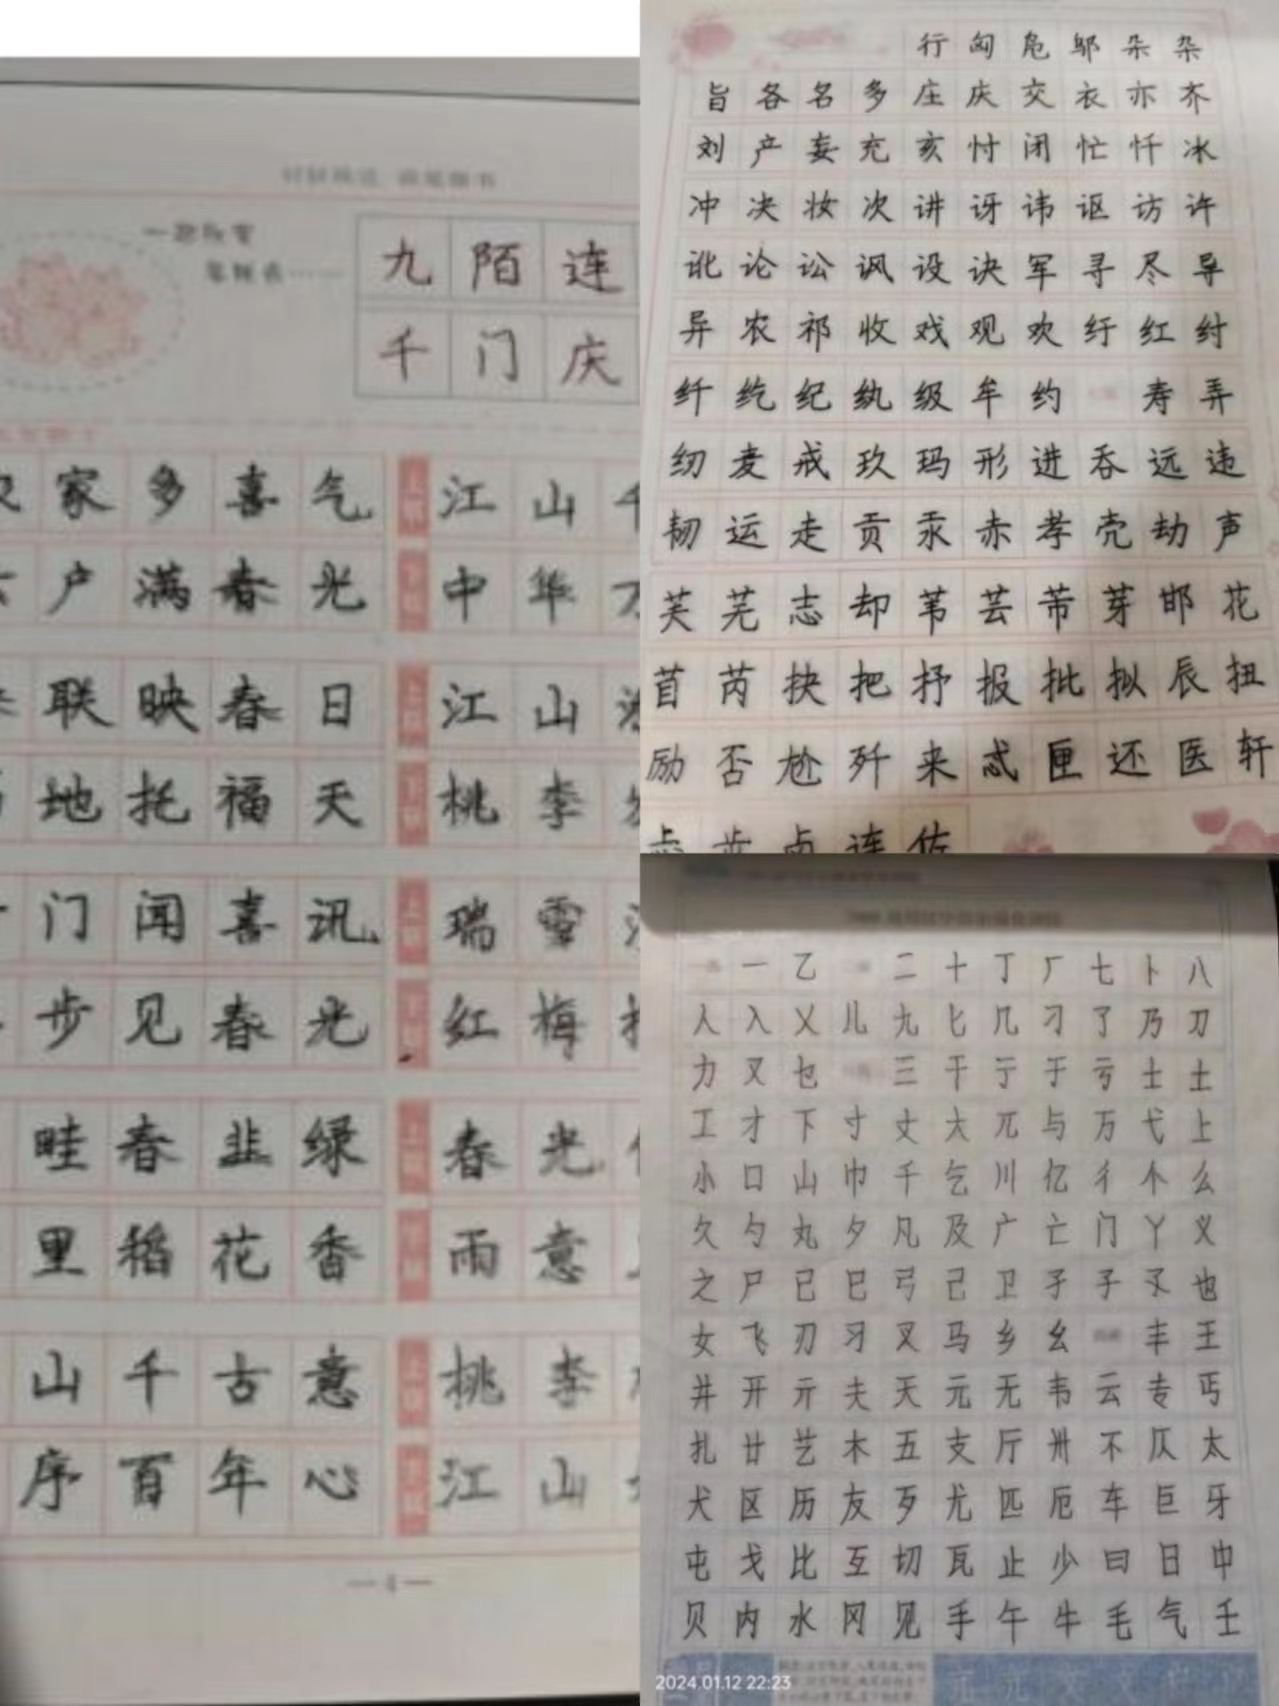 九陌连
千门庆
家多喜气
户满春光
联映春日
地托福天
门闻喜讯
步见春光
畦春韭绿
里稻花香
山千古意
序百年心
上联
江山
下联
中华
上联
江山
下联
桃李
上联
瑞雪
下联
红梅
上联
春光
下联
雨意
上联
桃李
下联
江山
4
行匈危邬朵杂
旨各名多庄庆交衣亦齐
刘产妄充亥忖闭忙忏冰
冲决妆次讲讶讳讴访许
讹论讼讽设诀军寻尽导
异农祁收戏观欢纡红纣
纤纥纪纨级牟约寿弄
纫麦戒玖玛形进吞远违
韧运走贡汞赤孝壳劫声
芙芜志却苇芸芾芽邯花
苜芮抉把抒报批拟辰扭
励否尬歼来忒匣还医轩
卤连佐
一乙二十丁厂七卜八
人入乂儿九匕几刁了乃刀
力又乜三干亍于亏士土
工才下寸丈大兀与万弋上
小口山巾千乞川亿彳个么
久勺丸夕凡及广亡门丫义
之尸已巳弓己卫孑子孓也
女飞刃习叉马乡幺丰王
井开亓夫天元无韦云专丐
扎廿艺木五支厅卅不仄太
犬区历友歹尤匹厄车巨牙
屯戈比互切瓦止少曰日中
贝内水冈见手午牛毛气壬
2024.01.12 22:23